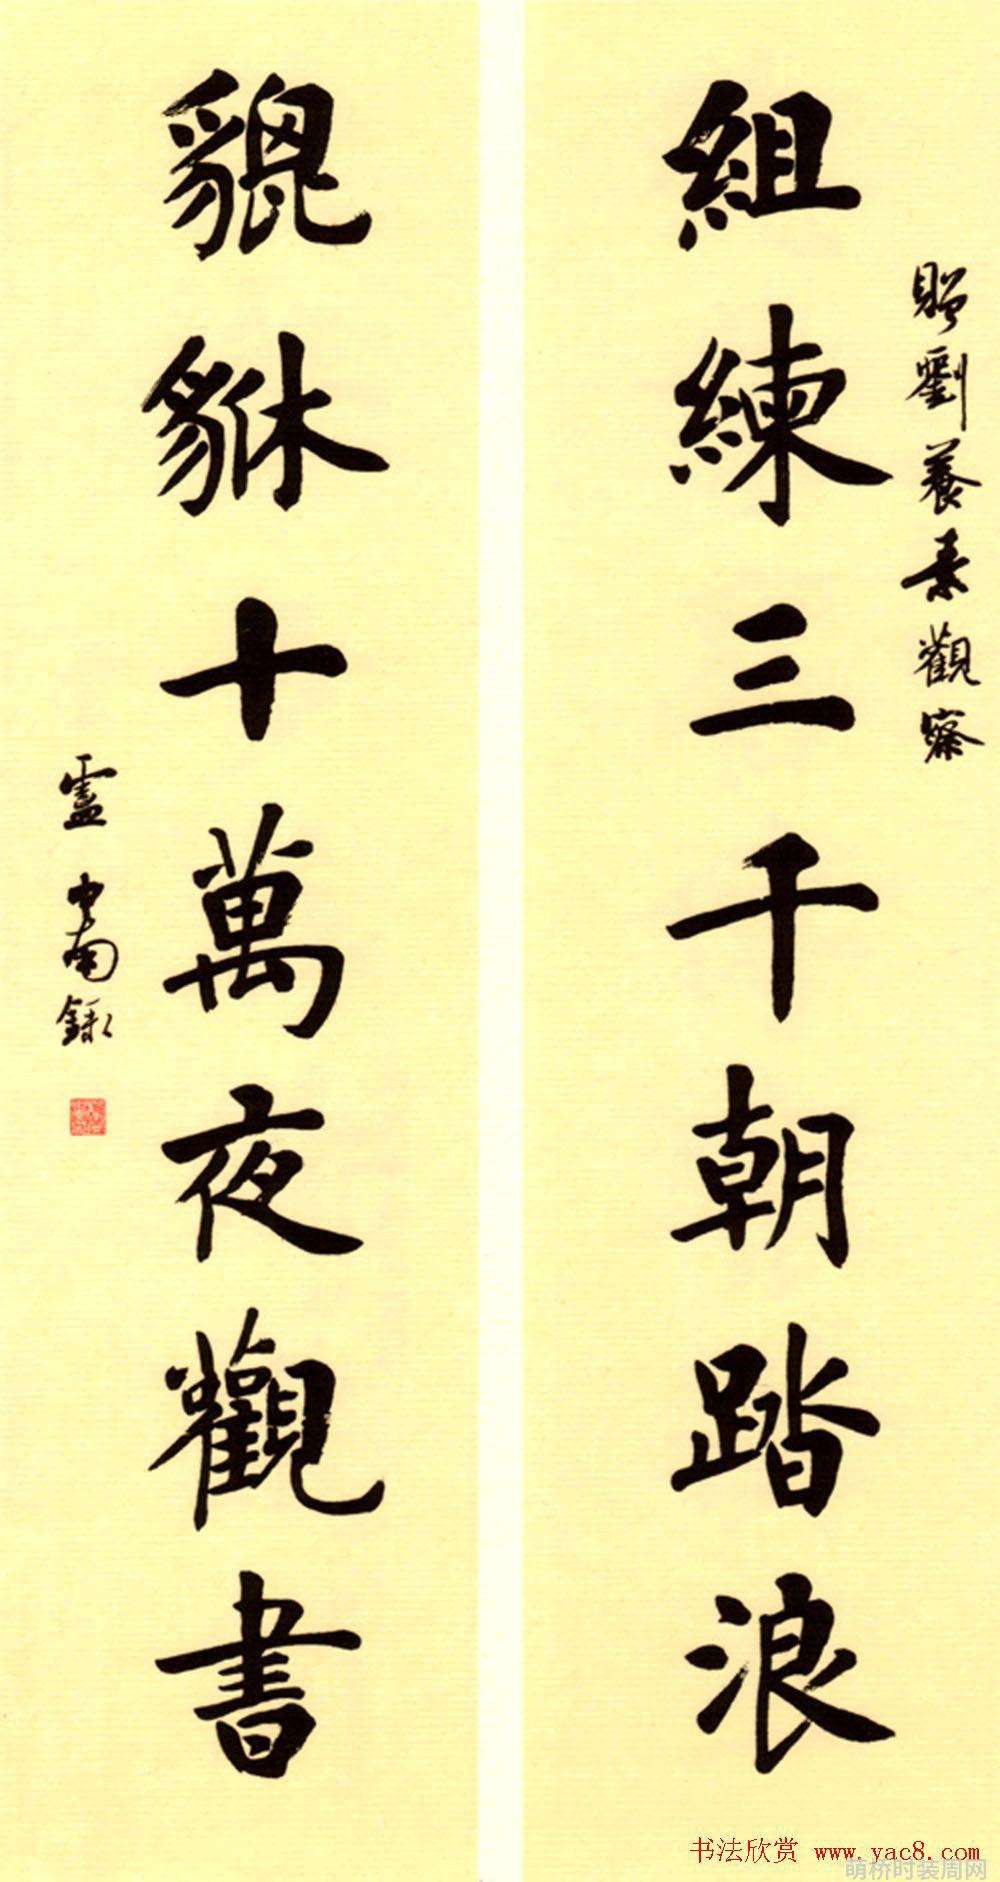 組練三千朝踏浪
贈劉養素觀察
貔貅十萬夜觀書
書法欣赏 www.yac8.com
萌桥时装周网